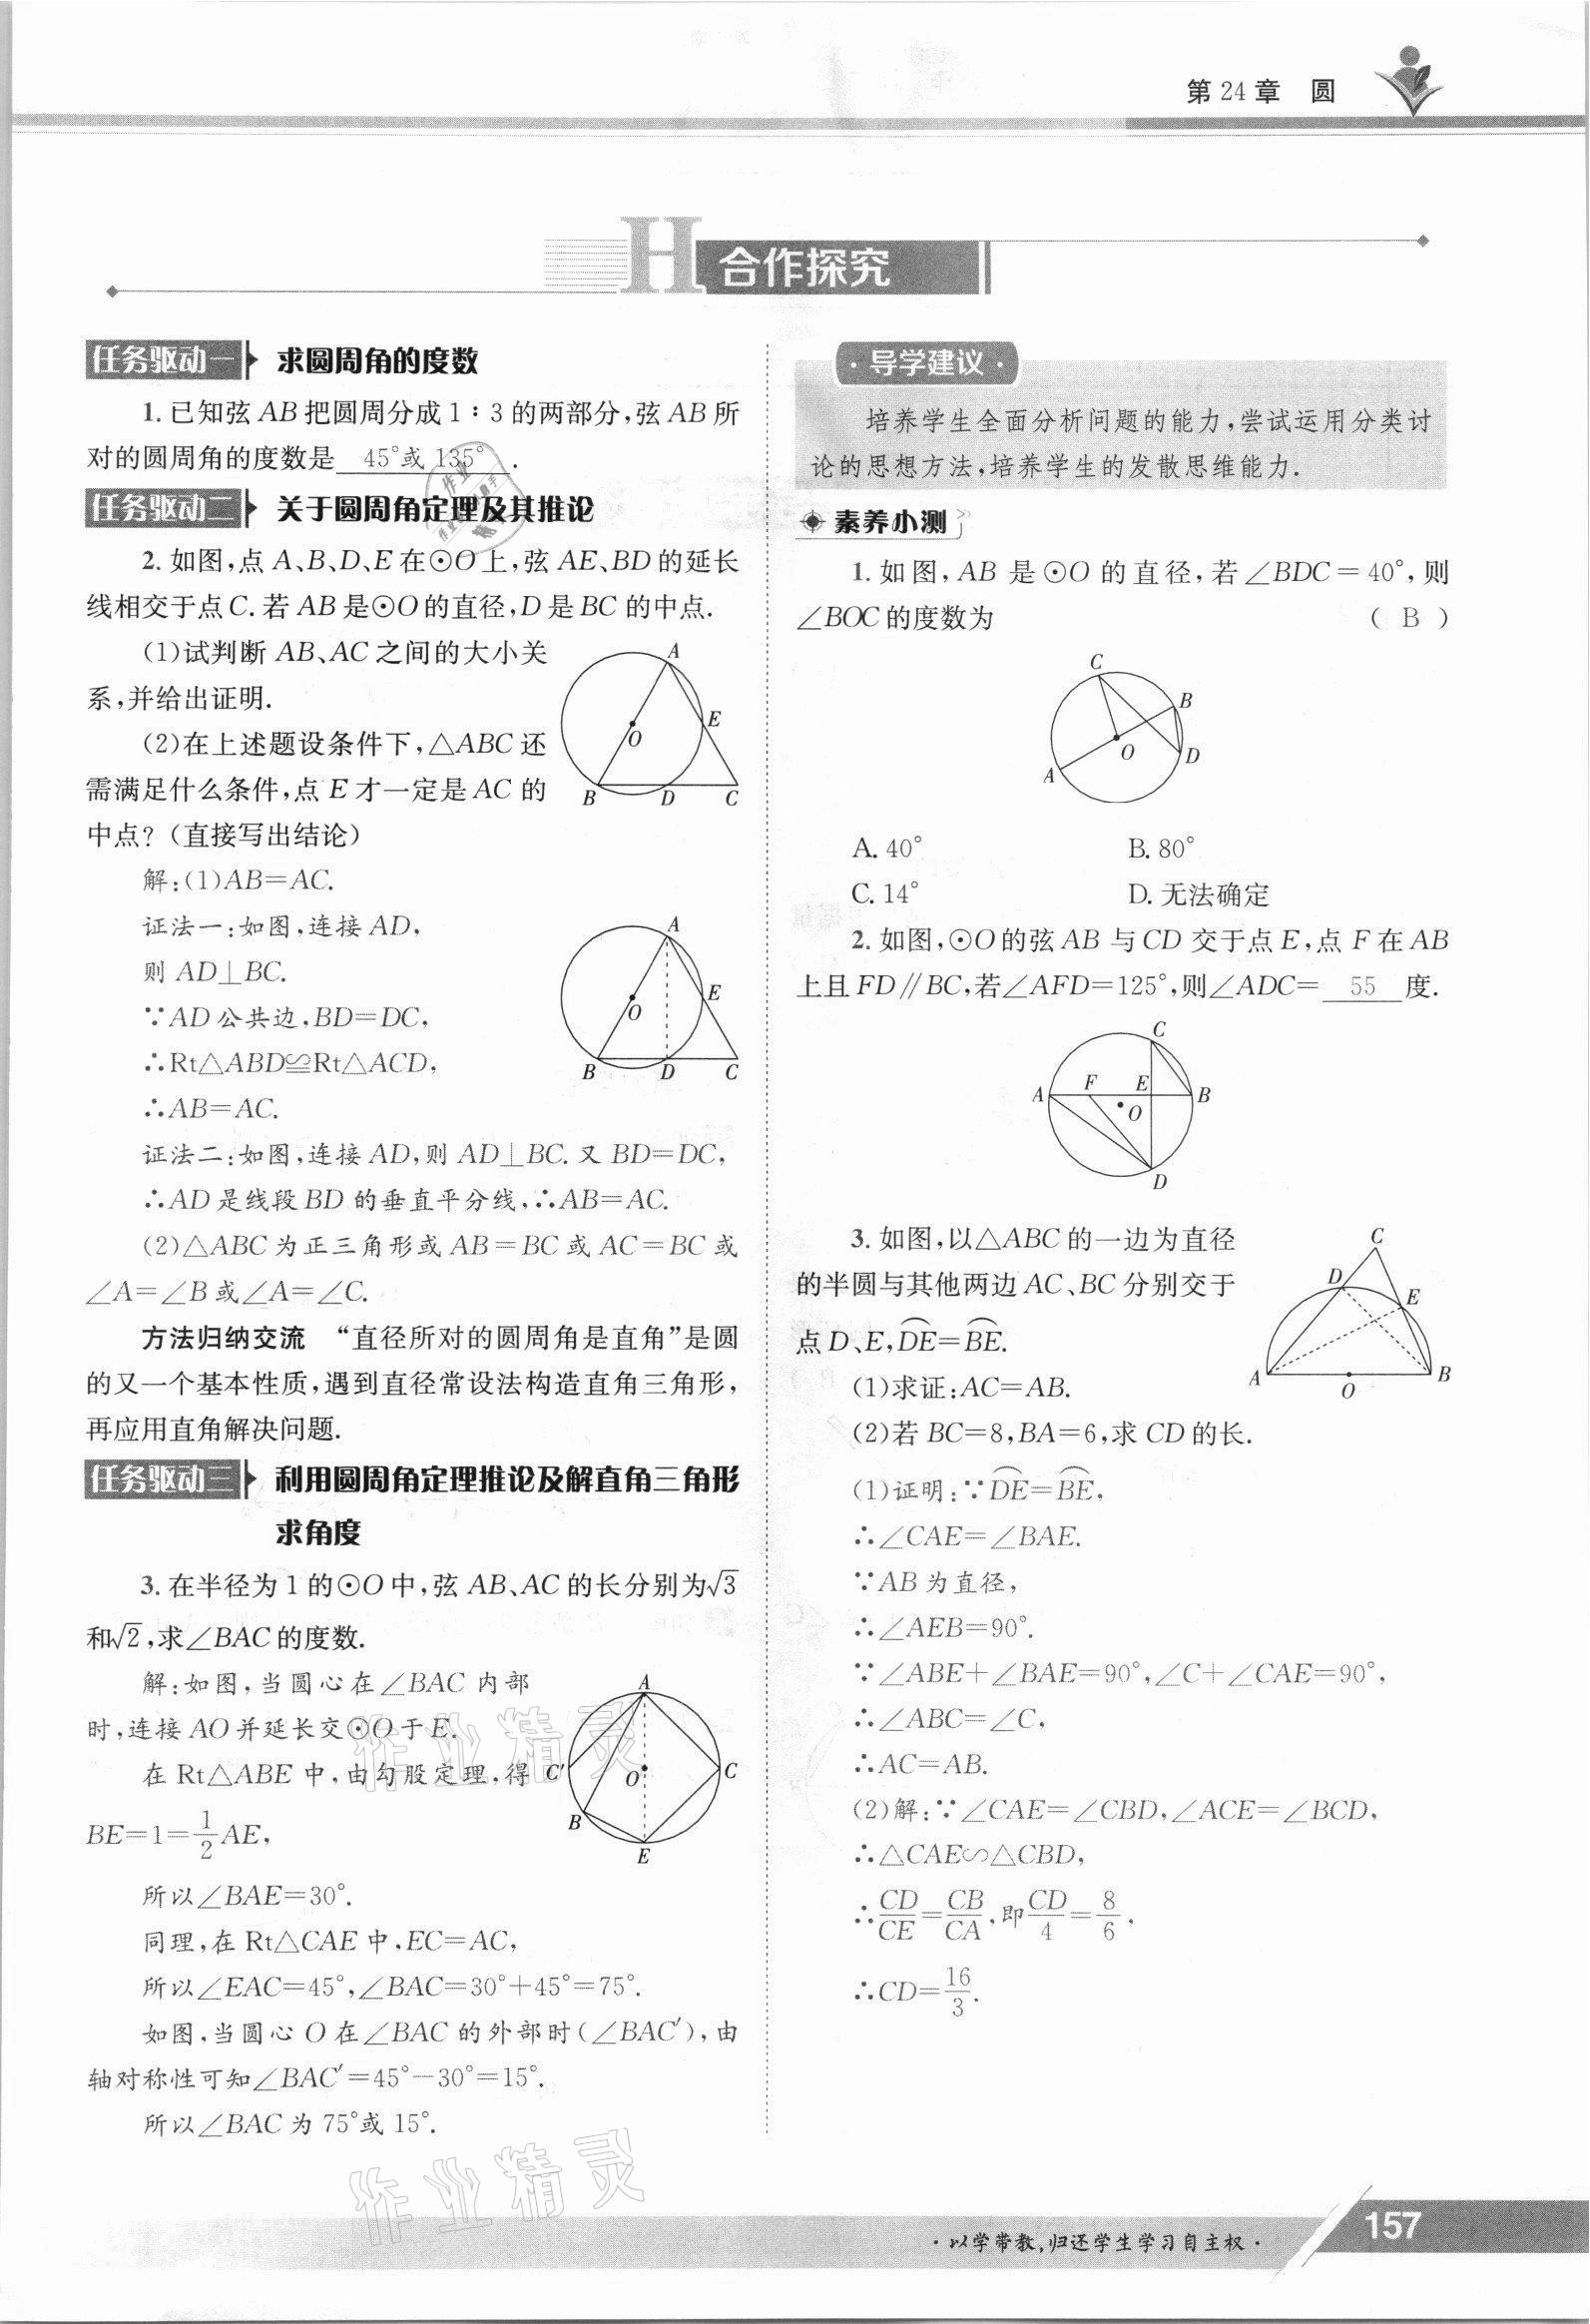 第24章 圆
H 合作探究
任务驱动一 求圆周角的度数
1. 已知弦 AB 把圆周分成 1∶3 的两部分,弦 AB 所
对的圆周角的度数是 45°或 135° .
任务驱动二 关于圆周角定理及其推论
2. 如图,点 A、B、D、E 在⊙O 上,弦 AE、BD 的延长
线相交于点 C. 若 AB 是⊙O 的直径,D 是 BC 的中点.
(1)试判断 AB、AC 之间的大小关
系,并给出证明.
(2)在上述题设条件下,△ABC 还
需满足什么条件,点 E 才一定是 AC 的
中点?(直接写出结论)
A
E
O
B D C
解:(1)AB=AC.
证法一:如图,连接 AD,
则 AD⊥BC.
∵AD 公共边,BD=DC,
∴Rt△ABD≌Rt△ACD,
∴AB=AC.
A
E
O
B D C
证法二:如图,连接 AD,则 AD⊥BC. 又 BD=DC,
∴AD 是线段 BD 的垂直平分线,∴AB=AC.
(2)△ABC 为正三角形或 AB=BC 或 AC=BC 或
∠A=∠B 或∠A=∠C.
方法归纳交流 “直径所对的圆周角是直角”是圆
的又一个基本性质,遇到直径常设法构造直角三角形,
再应用直角解决问题.
任务驱动三 利用圆周角定理推论及解直角三角形
求角度
3. 在半径为 1 的⊙O 中,弦 AB、AC 的长分别为√3
和√2,求∠BAC 的度数.
解:如图,当圆心在∠BAC 内部
时,连接 AO 并延长交⊙O 于 E.
在 Rt△ABE 中,由勾股定理,得
BE=1=1/2AE,
A
C′ O C
B
E
所以∠BAE=30°.
同理,在 Rt△CAE 中,EC=AC,
所以∠EAC=45°,∠BAC=30°+45°=75°.
如图,当圆心 O 在∠BAC 的外部时(∠BAC′),由
轴对称性可知∠BAC′=45°-30°=15°.
所以∠BAC 为 75°或 15°.
·导学建议·
培养学生全面分析问题的能力,尝试运用分类讨
论的思想方法,培养学生的发散思维能力.
素养小测
1. 如图,AB 是⊙O 的直径,若∠BDC=40°,则
∠BOC 的度数为 ( B )
C
B
O D
A
A. 40° B. 80°
C. 14° D. 无法确定
2. 如图,⊙O 的弦 AB 与 CD 交于点 E,点 F 在 AB
上且 FD∥BC,若∠AFD=125°,则∠ADC= 55 度.
C
A F E B
O
D
3. 如图,以△ABC 的一边为直径
的半圆与其他两边 AC、BC 分别交于
点 D、E,⌒DE=⌒BE.
(1)求证:AC=AB.
(2)若 BC=8,BA=6,求 CD 的长.
C
D
E
A O B
(1)证明:∵⌒DE=⌒BE,
∴∠CAE=∠BAE.
∵AB 为直径,
∴∠AEB=90°.
∵∠ABE+∠BAE=90°,∠C+∠CAE=90°,
∴∠ABC=∠C,
∴AC=AB.
(2)解:∵∠CAE=∠CBD,∠ACE=∠BCD,
∴△CAE∽△CBD,
∴CD/CE=CB/CA,即CD/4=8/6,
∴CD=16/3.
作业精灵
作业精灵
·以学带教,归还学生学习自主权·
157